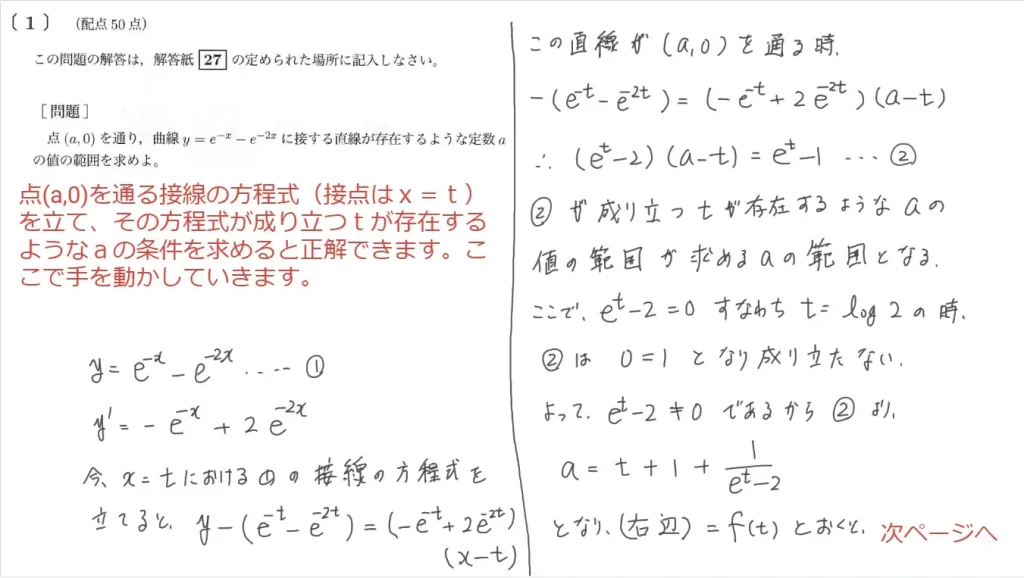 〔1〕 (配点50点)
この問題の解答は,解答紙 27 の定められた場所に記入しなさい。
[問題]
点(a,0)を通り,曲線 y=e^{-x}-e^{-2x} に接する直線が存在するような定数 a
の値の範囲を求めよ。
点(a,0)を通る接線の方程式(接点はx=t)
を立て、その方程式が成り立つtが存在する
ようなaの条件を求めると正解できます。こ
こで手を動かしていきます。
y=e^{-x}-e^{-2x} ‥‥①
y'=-e^{-x}+2e^{-2x}
今、x=tにおける①の接線の方程式を
立てると、y-(e^{-t}-e^{-2t})=(-e^{-t}+2e^{-2t})
(x-t)
この直線が(a,0)を通る時、
-(e^{-t}-e^{-2t})=(-e^{-t}+2e^{-2t})(a-t)
∴(e^t-2)(a-t)=e^t-1 …②
②が成り立つtが存在するようなaの
値の範囲が求めるaの範囲となる.
ここで、e^t-2=0 すなわち t=log2の時、
②は 0=1 となり成り立たない.
よって、e^t-2≠0 であるから②より、
a=t+1+\frac{1}{e^t-2}
となり、(右辺)=f(t)とおくと、 次ページへ